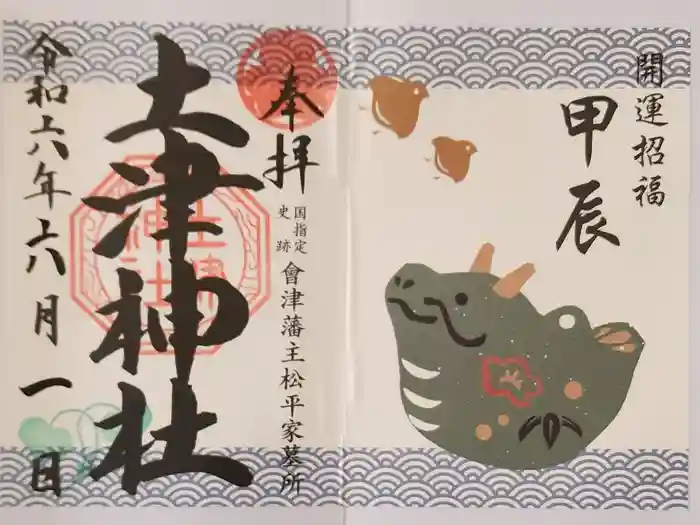 開運招福
甲辰
奉拝
国指定
史跡
會津藩主松平家墓所
土津神社
令和六年六月一日